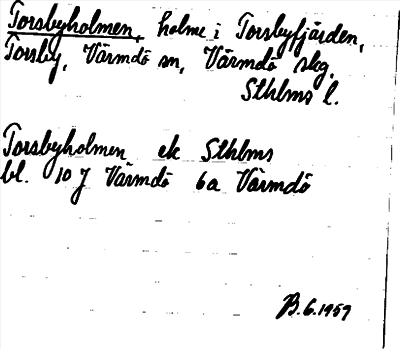 Torsbyholmen, holme i Torsbyfjärden,
Torsby, Värmdö sn, Värmdö skg.
Sthlms l.
Torsbyholmen ek Sthlms
bl. 10 J Värmdö 6a Värmdö
B.6.1959